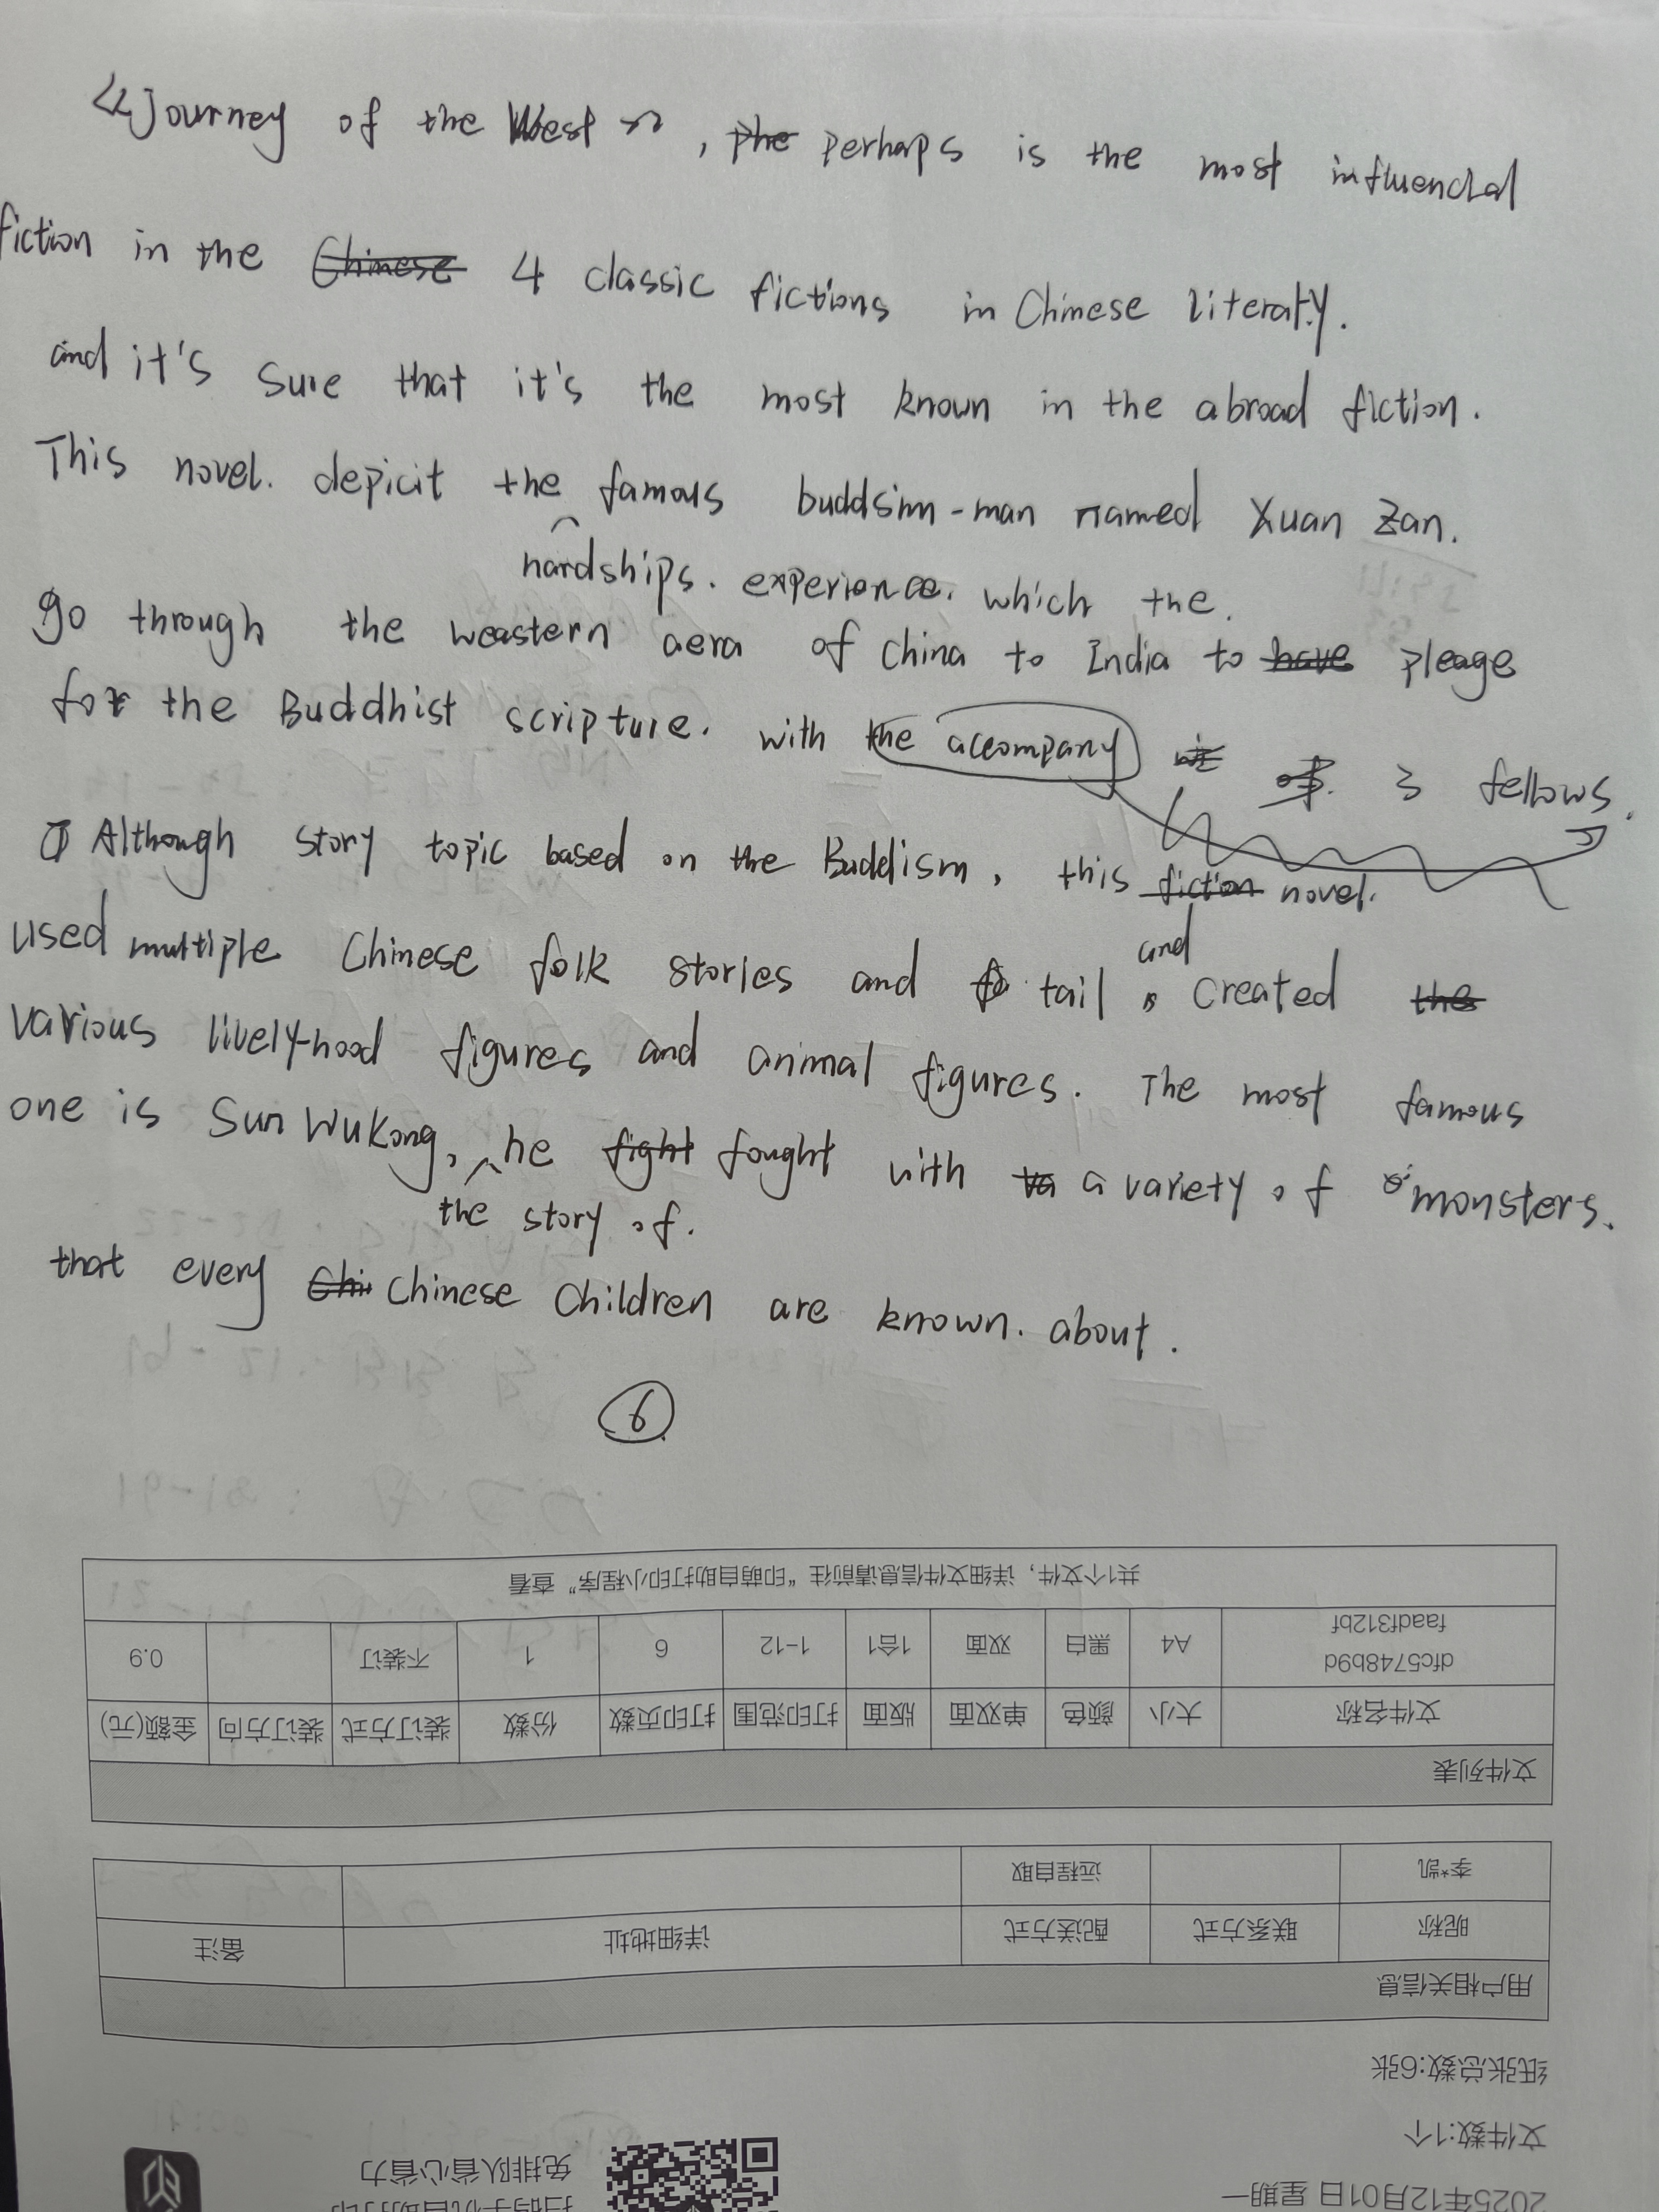 《Journey of the West》, perhaps is the most influencial
fiction in the 4 classic fictions in Chinese literaty.
and it's sure that it's the most known in the abroad fiction.
This novel. depicit the famous buddsim-man named Xuan Zan.
hardships. experience. which the.
go through the weastern aera of China to India to pleage
for the Buddhist scripture. with the accompany 3 fellows.
Although story topic based on the Buddism, this novel.
and
used multiple Chinese folk stories and tail, created
various lively-hood figures and animal figures. The most famous
one is Sun WuKong, he fought with a variety of monsters.
the story of.
that every Chinese Children are known. about.
6
共1个文件，详细文件信息请前往“印萌自助打印小程序”查看
dfc5748b9d faadf312bf A4 黑白 双面 1合1 1-12 6 1 不装订 0.9
文件名称 大小 颜色 单双面 版面 打印范围 打印页数 份数 装订方式 装订方向 金额(元)
文件列表
李*凯 远程自取
昵称 联系方式 配送方式 详细地址 备注
用户相关信息
纸张总数:6张
文件数:1个
免排队省心省力
2025年12月01日 星期一